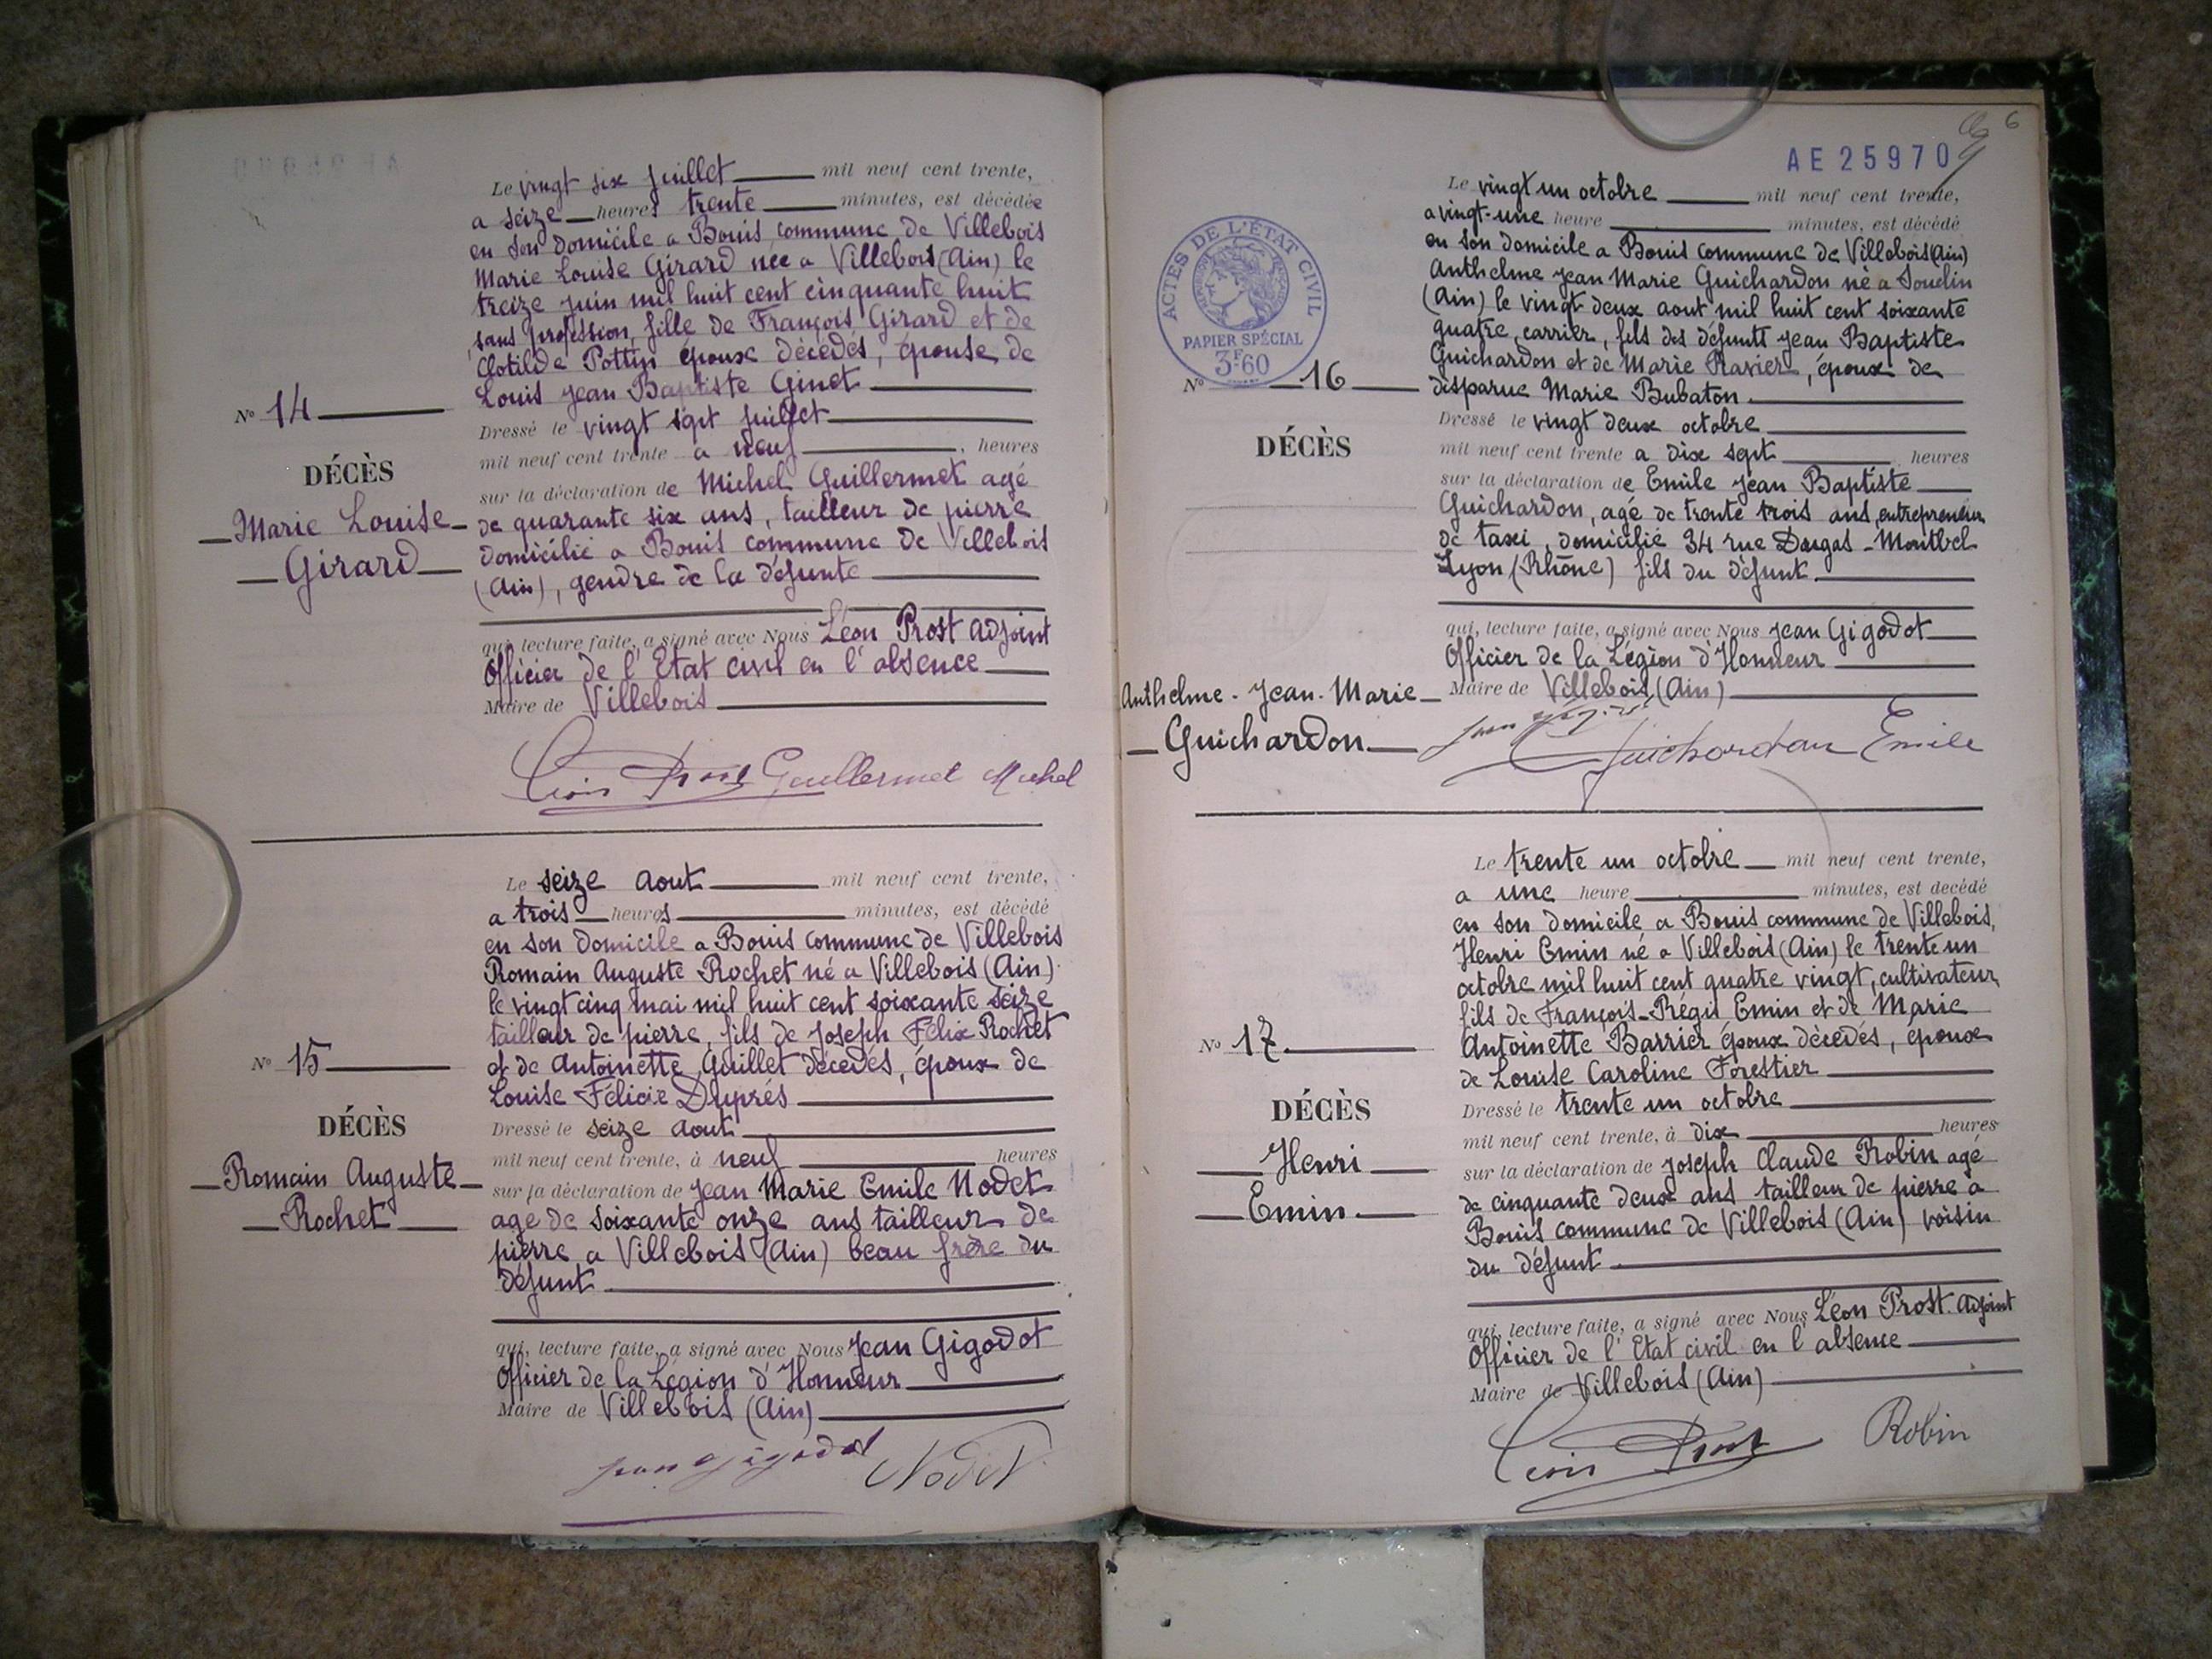 Le vingt six juillet mil neuf cent trente,
a seize heures trente minutes, est décédée
en son domicile a Bouis commune de Villebois
Marie Louise Girard née a Villebois (Ain) le
treize juin mil huit cent cinquante huit
sans profession, fille de François Girard et de
Clotilde Pottin époux décédés, épouse de
Louis Jean Baptiste Ginet
Nº 14
Dressé le vingt sept juillet
mil neuf cent trente a neuf heures
DÉCÈS
sur la déclaration de Michel Guillermet agé
Marie Louise
de quarante six ans, tailleur de pierre
Girard
domicilié a Bouis commune de Villebois
(Ain), gendre de la défunte
qui, lecture faite, a signé avec Nous Léon Prost adjoint
Officier de l'Etat civil en l'absence
Maire de Villebois
Léon Prost Guillermet Michel
Le seize aout mil neuf cent trente,
a trois heures minutes, est décédé
en son domicile a Bouis commune de Villebois
Romain Auguste Rochet né a Villebois (Ain)
le vingt cinq mai mil huit cent soixante seize
tailleur de pierre, fils de Joseph Félix Rochet
et de Antoinette Guillet décedés, époux de
Louise Félicie Duprés
Nº 15
DÉCÈS
Dressé le seize aout
mil neuf cent trente, à neuf heures
Romain Auguste
sur la déclaration de Jean Marie Emile Nodet
Rochet
agé de soixante onze ans tailleur de
pierre a Villebois (Ain) beau frère du
défunt
qui, lecture faite, a signé avec Nous Jean Gigodot
Officier de la Légion d'Honneur
Maire de Villebois (Ain)
Jean Gigodot Nodet
6
AE 25970
Le vingt un octobre mil neuf cent trente,
a vingt-une heure minutes, est décédé
en son domicile a Bouis commune de Villebois (Ain)
Anthelme Jean Marie Guichardon né a Souclin
(Ain) le vingt deux aout mil huit cent soixante
quatre, carrier, fils des défunts Jean Baptiste
Guichardon et de Marie Ravier, époux de
disparue Marie Bubaton.
ACTES DE L'ÉTAT CIVIL
PAPIER SPÉCIAL
3F60
Nº 16
Dressé le vingt deux octobre
DÉCÈS
mil neuf cent trente a dix sept heures
sur la déclaration de Emile Jean Baptiste
Guichardon, agé de trente trois ans, entrepreneur
de taxi, domicilié 34 rue Dugas-Montbel
Lyon (Rhône) fils du défunt
qui, lecture faite, a signé avec Nous Jean Gigodot
Officier de la Légion d'Honneur
Maire de Villebois (Ain)
Anthelme-Jean-Marie
Guichardon
Jean Gigodot Guichardon Emile
Le trente un octobre mil neuf cent trente,
a une heure minutes, est decédé
en son domicile a Bouis commune de Villebois,
Henri Emin né a Villebois (Ain) le trente un
octobre mil huit cent quatre vingt, cultivateur,
fils de François-Régis Emin et de Marie
Antoinette Barrier époux décedés, époux
de Louise Caroline Forestier
Nº 17
DÉCÈS
Dressé le trente un octobre
mil neuf cent trente, à dix heures
Henri
sur la déclaration de Joseph Claude Robin agé
Emin
de cinquante deux ans tailleur de pierre a
Bouis commune de Villebois (Ain) voisin
du défunt
qui, lecture faite, a signé avec Nous Léon Prost. adjoint
Officier de l'Etat civil en l'absence
Maire de Villebois (Ain)
Léon Prost Robin